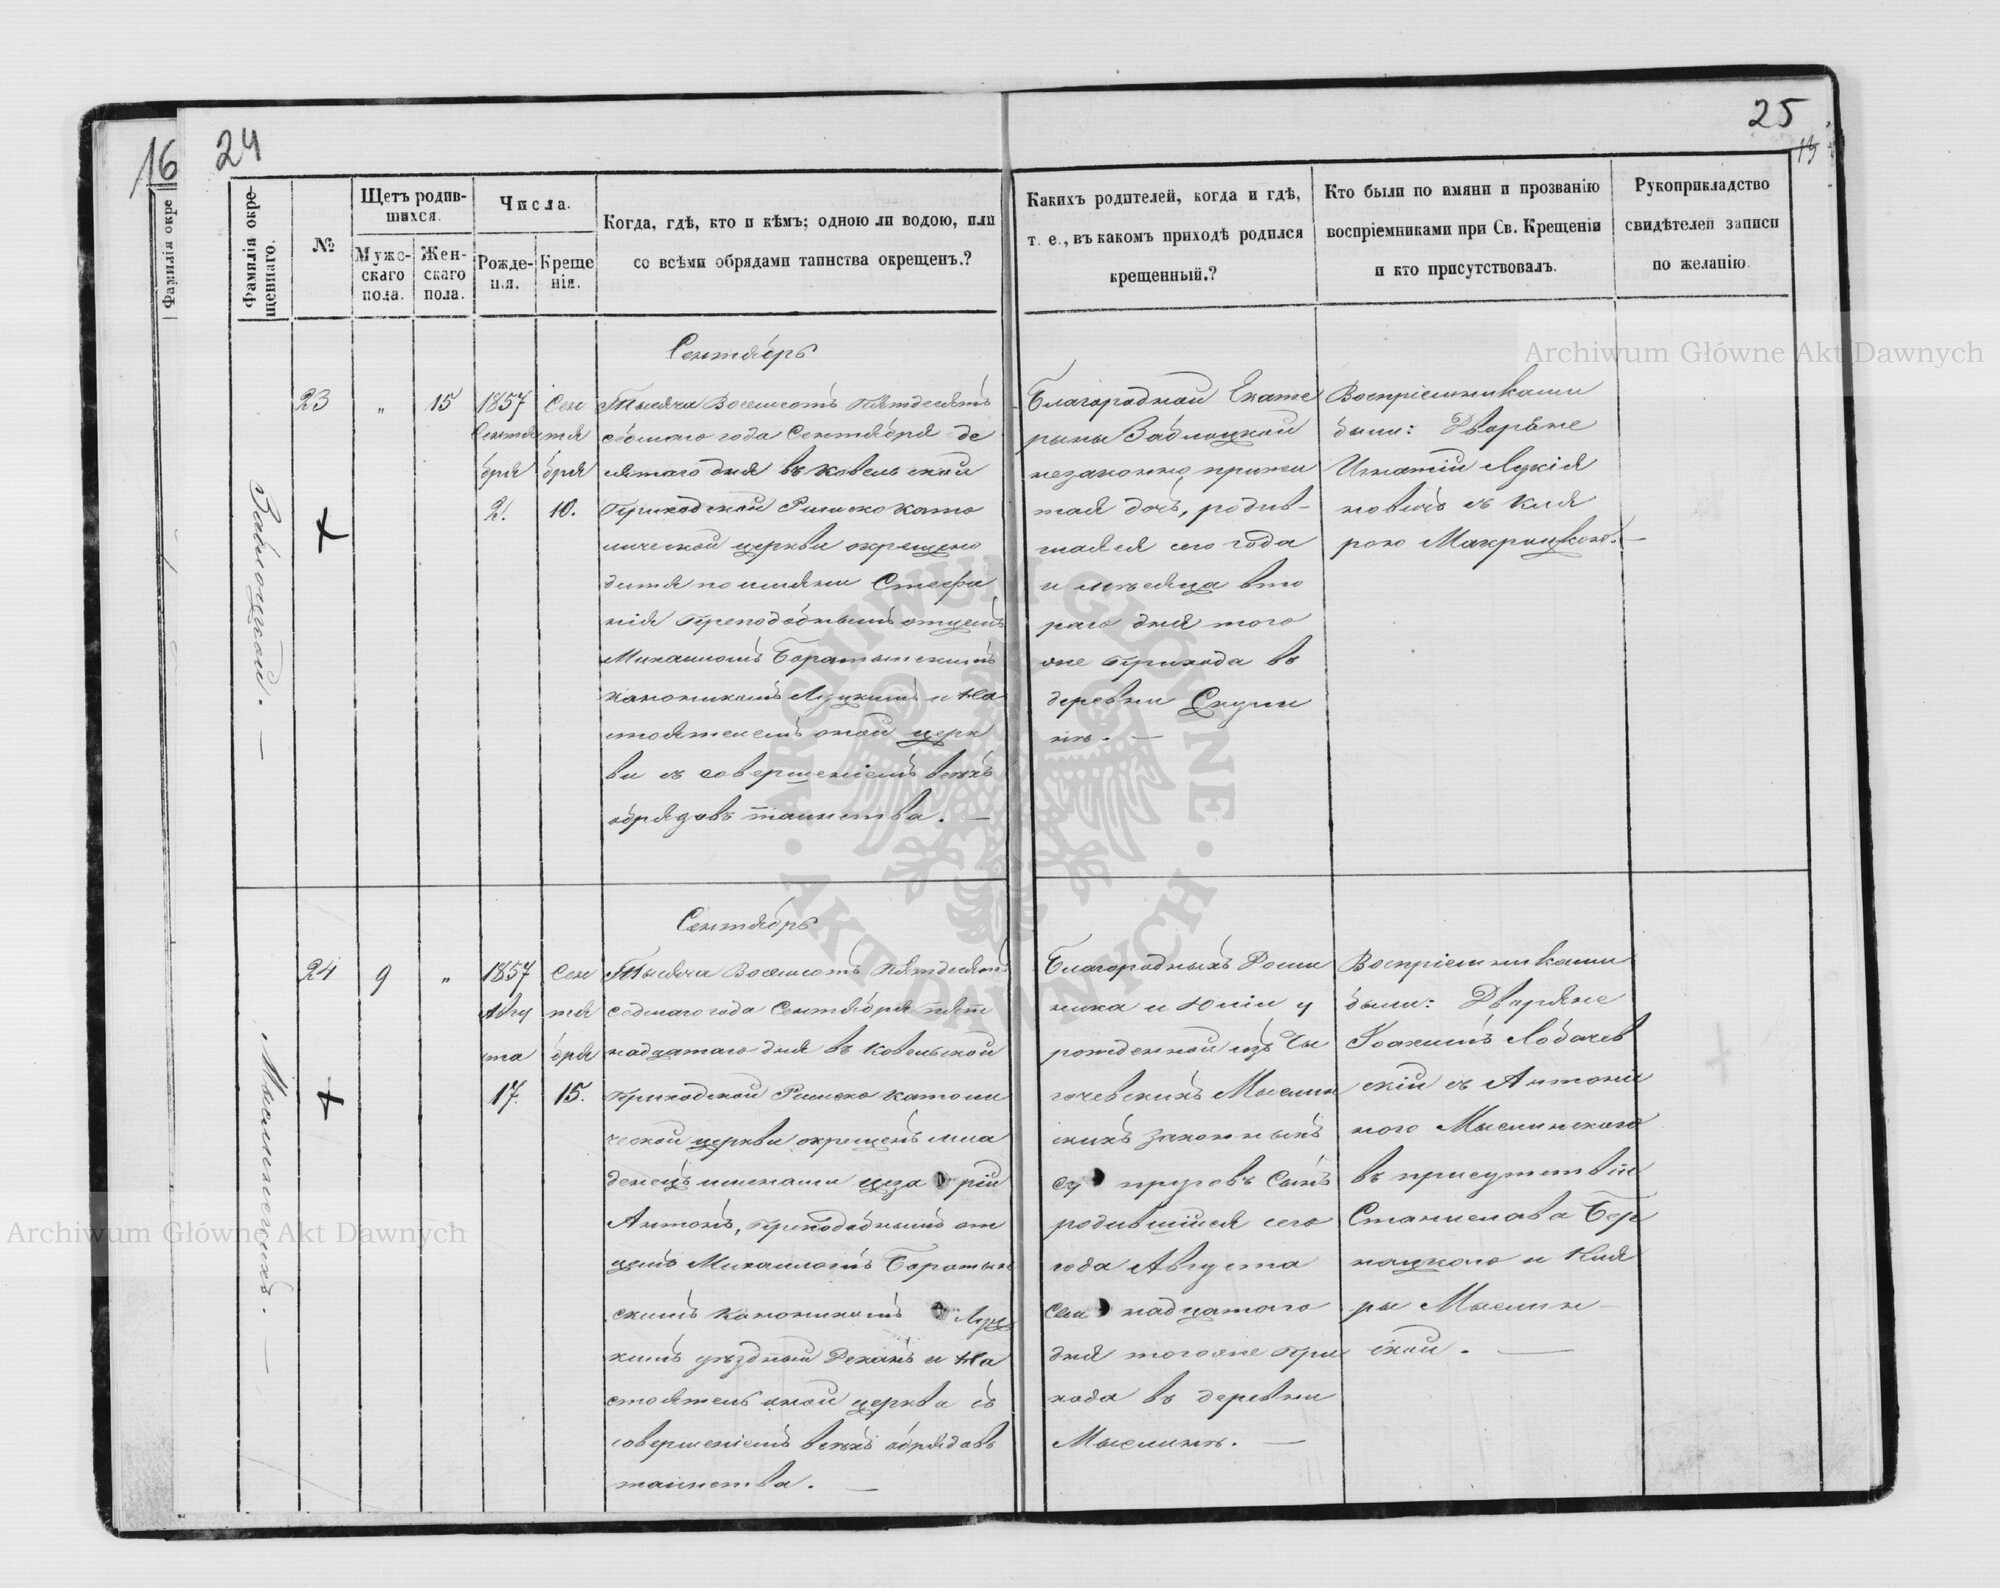 16
24
25
13
Фамилія окре
Фамилія окре-
щеннаго.
№
Щетъ родив-
шихся.
Мужс-
скаго
пола.
Жен-
скаго
пола.
Числа.
Рожде-
нія.
Креще
нія.
Когда, гдѣ, кто и кѣмъ; одною ли водою, или
со всѣми обрядами таинства окрещенъ.?
Каких родителей, когда и гдѣ,
т. е., въ какомъ приходѣ родился
крещенный.?
Кто были по имяни и прозванію
воспріемниками при Св. Крещеніи
и кто присутствовалъ.
Рукоприкладство
свидѣтелей записи
по желанію.
Заблоцкой. —
23
„
15
1857
Сентя
бря
2.
Сен
тя
бря
10.
Сентябрь
Тысяча Восемсотъ Пятдесятъ
седмаго года Сентября де
сятаго дня въ Ковельской
Приходской Римско Като
лической церкви окрещено
дитя по имяни Стефа
нія Преподобнымъ отцемъ
Михаиломъ Баратынскимъ
каноникомъ Луцкимъ и На
стоятелемъ оной церк
ви съ совершеніемъ всѣхъ
обрядовъ таинства. —
Благородной Екате
рины Заблоцкой
незаконно прижи
тая дочь, родив-
шаяся сего года
и мѣсяца вто
раго дня того
же Прихода въ
деревни Скули
нѣ. —
Воспріемниками
были: Дворяне
Игнатій Лукія
новичъ съ Кля
рою Макрицкою. —
Мыслинскихъ. —
24
9
„
1857
Авгу
ста
17.
Сен
тя
бря
15.
Сентябрь
Тысяча Восемсотъ Пятдесятъ
седмаго года Сентября пят
надцатаго дня въ Ковельской
Приходской Римско Католи
ческой церкви окрещенъ мла
денецъ именами Цеза рій
Антонъ, Преподобнымъ от
цемъ Михаиломъ Баратын
скимъ Каноникомъ Луц
кимъ уѣздный Деканъ и На
стоятель оной церкви съ
совершеніемъ всѣхъ обрядовъ
таинства. —
Благородныхъ Доми
ника и Юліи у
рожденной изъ Чы
гочевскихъ Мыслин
скихъ законныхъ
су пруговъ Сынъ
родившійся сего
года Августа
сем надцатаго
дня тогоже При
хода въ деревни
Мыслинѣ. —
Воспріемниками
были: Дворяне
Іоахимъ Лобачев
скій съ Антони
ною Мыслинскою
въ присутствіи
Станислава Бер
нацкого и Кля
ры Мыслин-
ской. —
Archiwum Główne Akt Dawnych
Archiwum Główne Akt Dawnych
· ARCHIWUM GŁÓWNE · AKT DAWNYCH